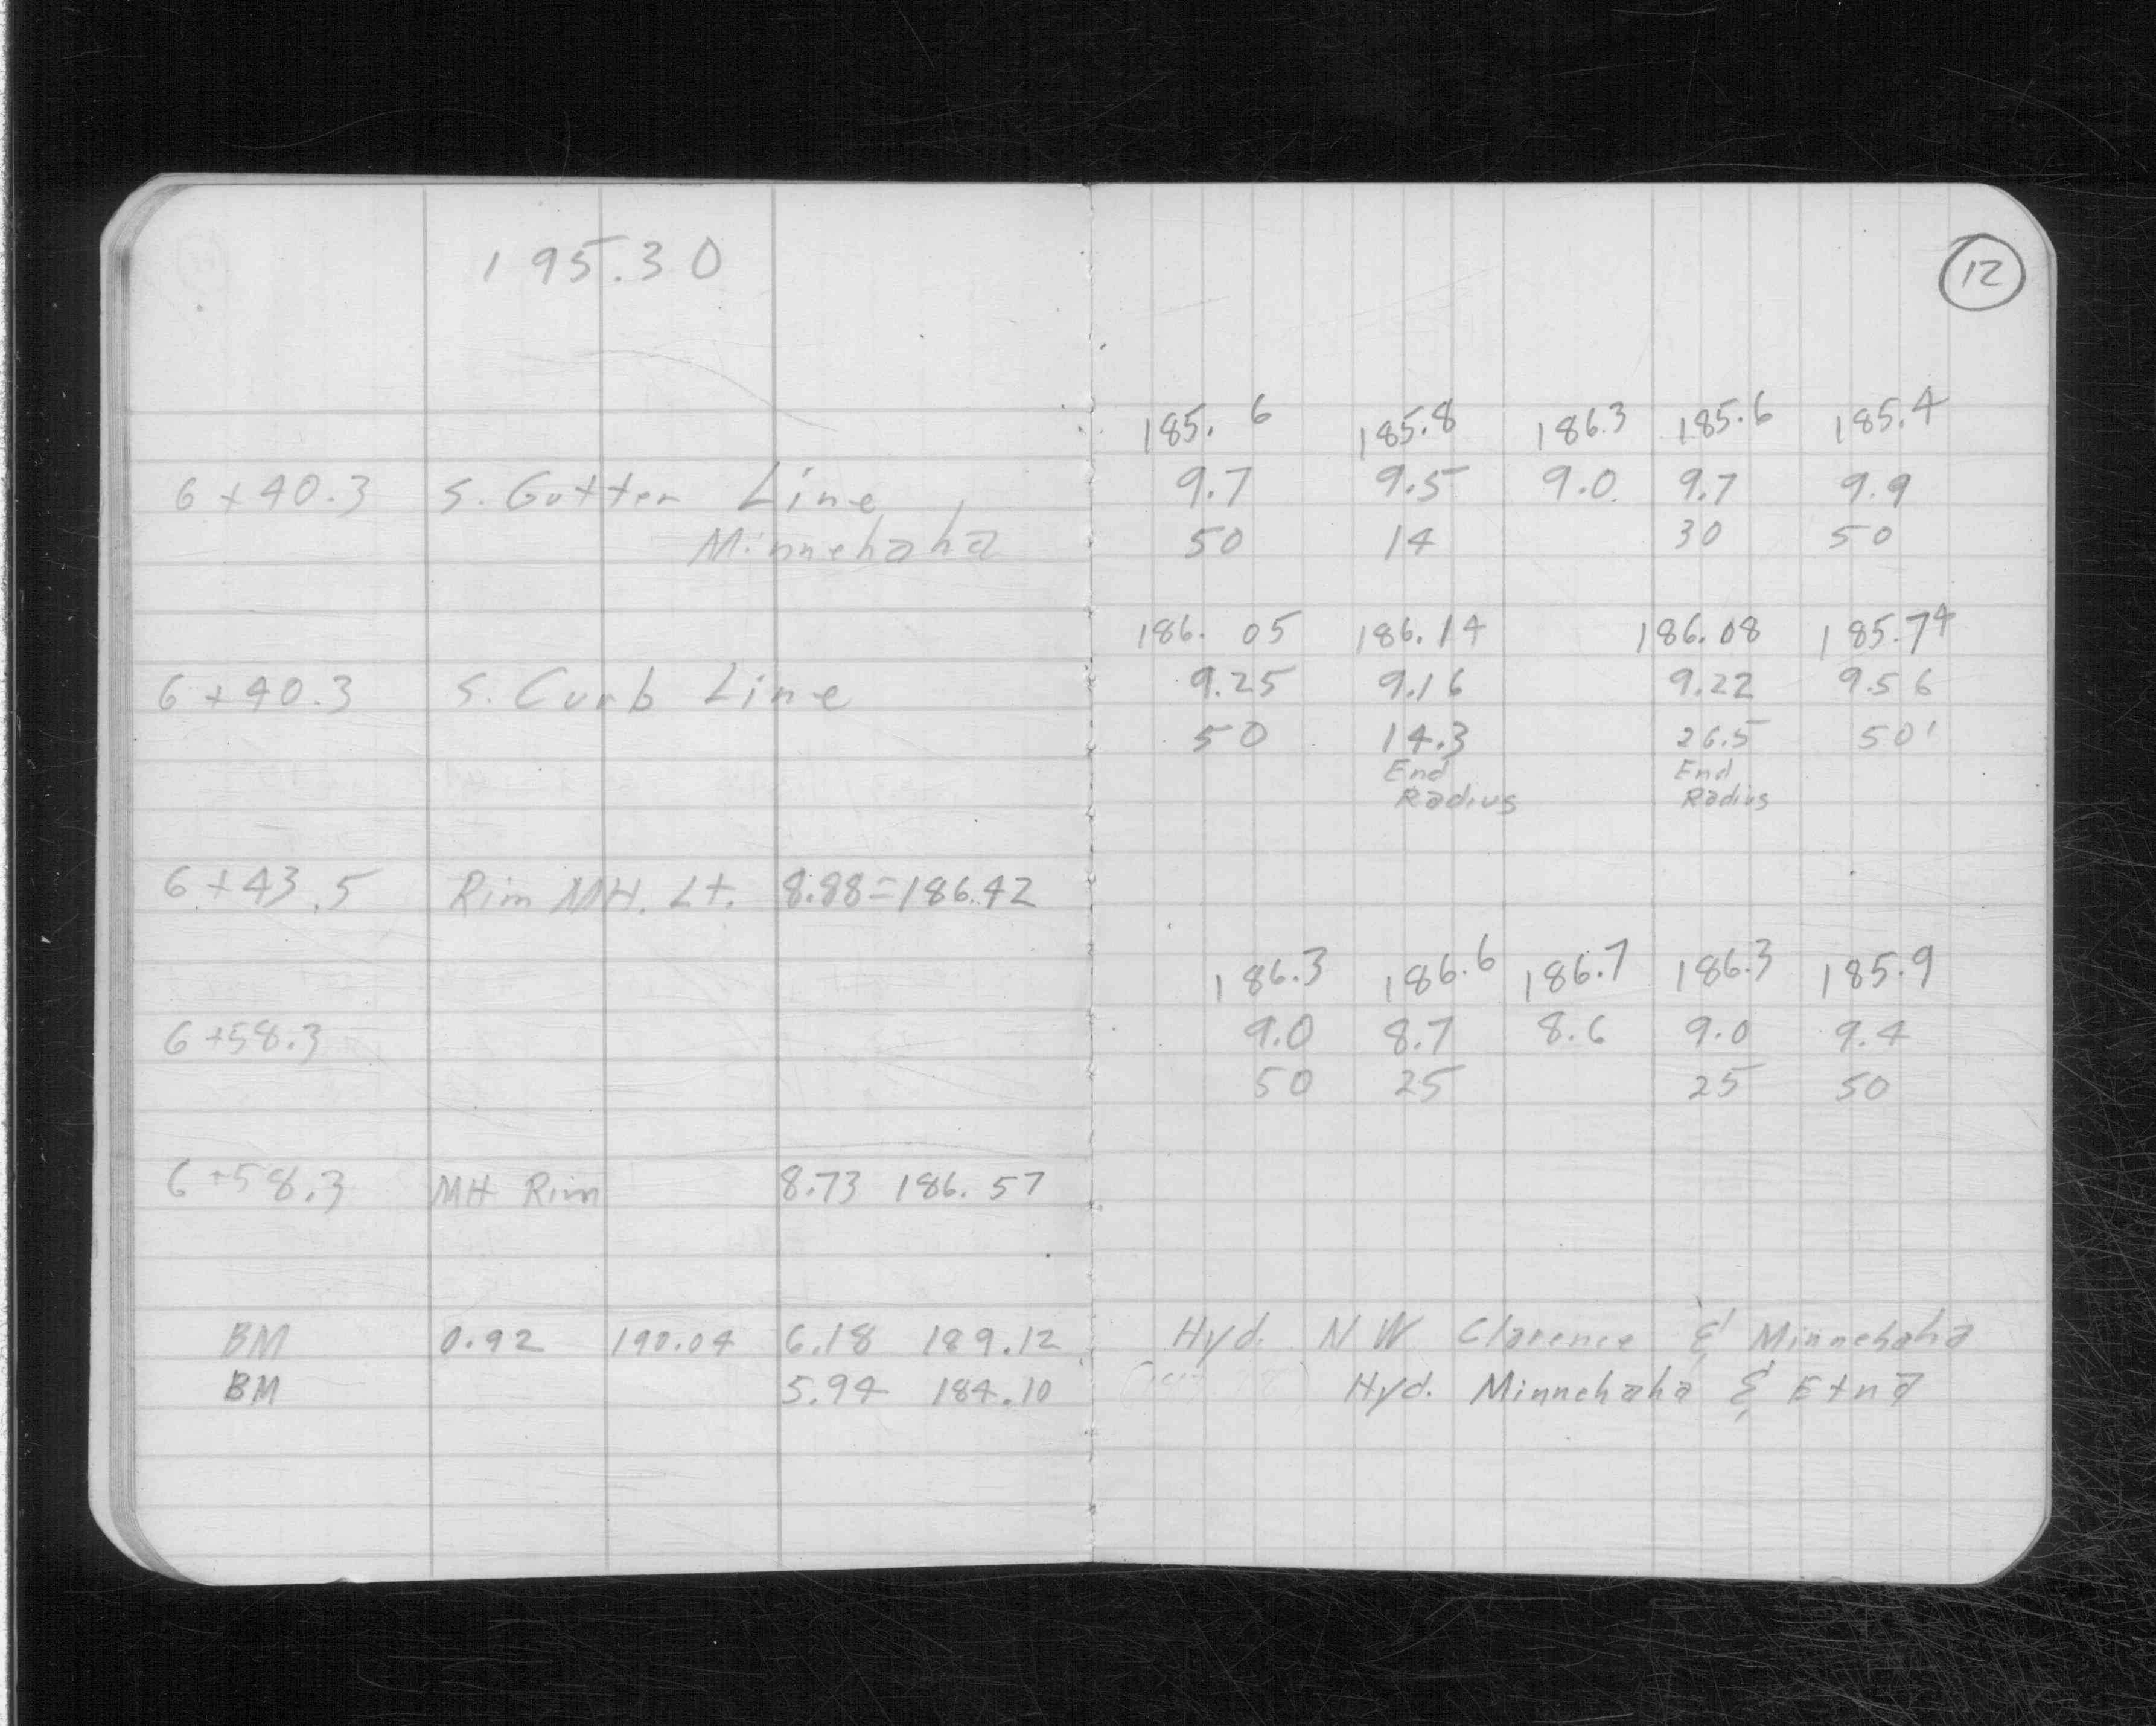 195.30
12
185.6 185.8 186.3 185.6 185.4
6+40.3 S. Gutter Line 9.7 9.5 9.0 9.7 9.9
Minnehaha 50 14 30 50
186.05 186.14 186.08 185.74
6+40.3 S. Curb Line 9.25 9.16 9.22 9.56
50 14.3 26.5 50'
End End
Radius Radius
6+43.5 Rim MH. Lt. 8.88=186.42
186.3 186.6 186.7 186.3 185.9
6+58.3 9.0 8.7 8.6 9.0 9.4
50 25 25 50
6+58.3 MH Rim 8.73 186.57
BM 0.92 190.04 6.18 189.12 Hyd. NW Clarence & Minnehaha
BM 5.94 184.10 Hyd. Minnehaha & Etna